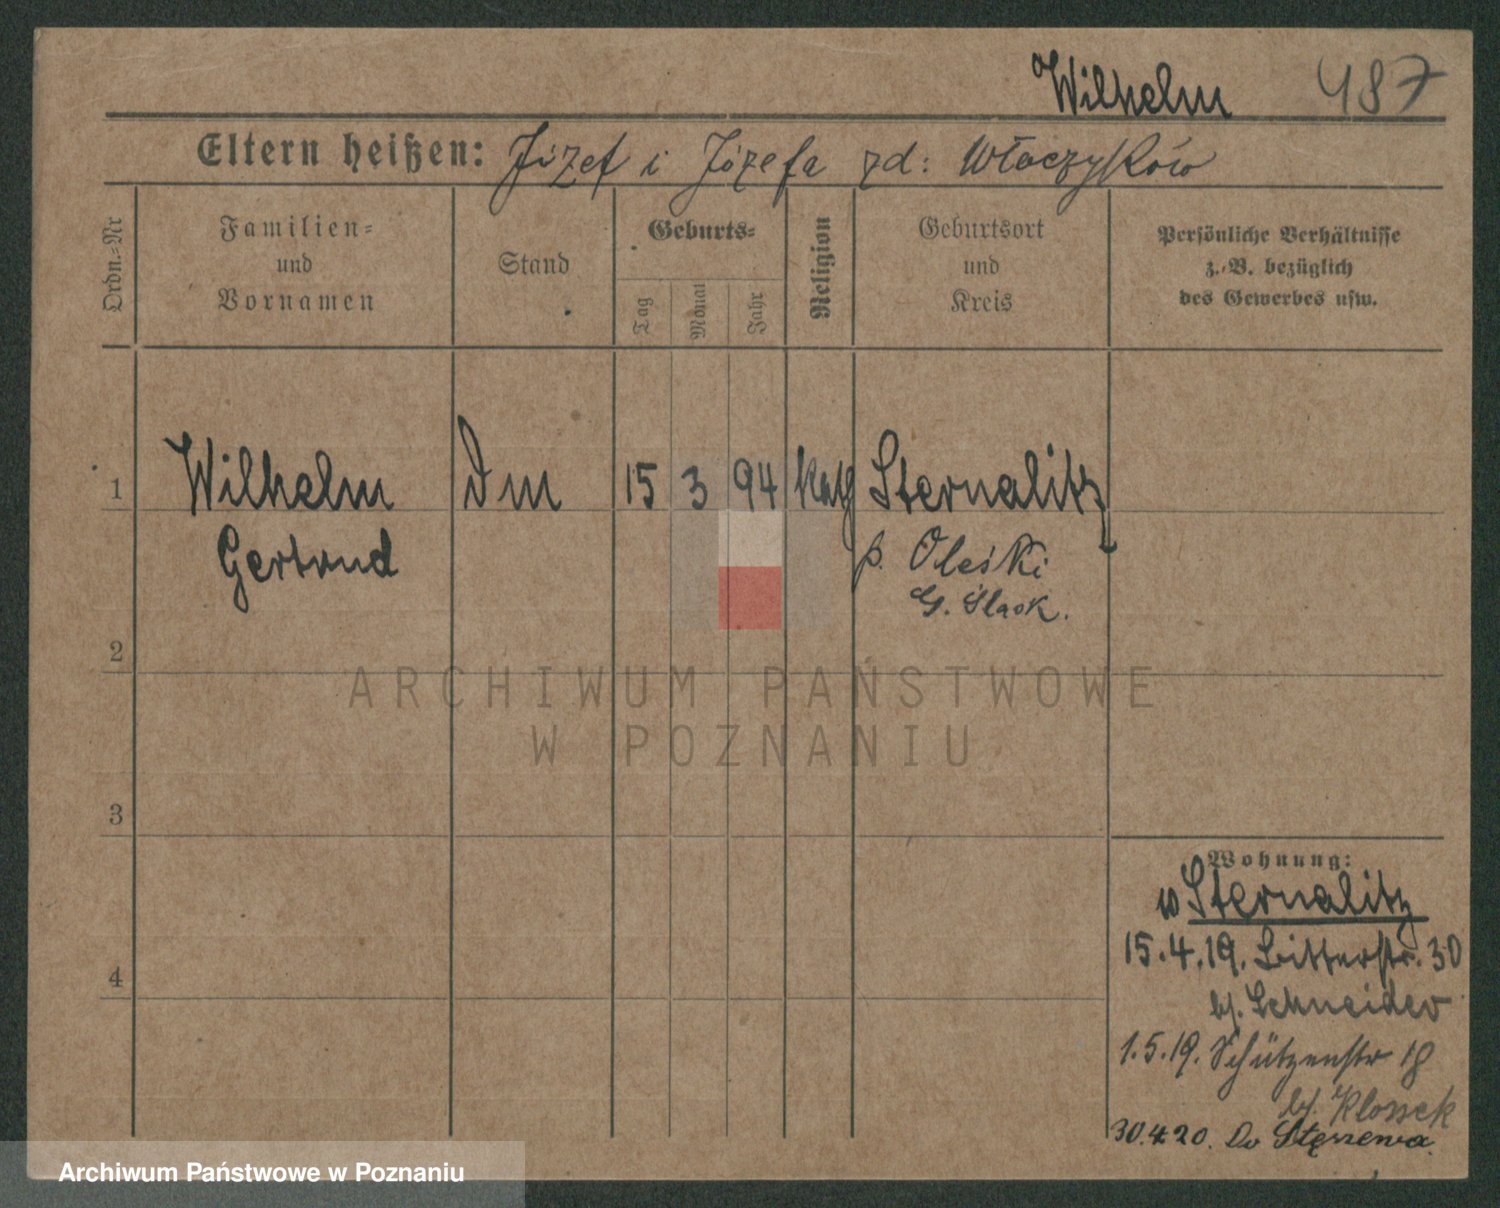 Wilhelm 487
Eltern heißen: Józef i Józefa zd: Włoczyków
Ordn.=Nr
Familien=
und
Vornamen
Stand
Geburts=
Tag
Monat
Jahr
Religion
Geburtsort
und
Kreis
Persönliche Verhältnisse
z. B. bezüglich
des Gewerbes usw.
1 Wilhelm 15 3 94 kath Sternalitz
Gertrud p. Oleśki
G. Śląsk.
2
3
4
Wohnung:
w Sternalitz
15.4.19. Ritterstr. 30
bf. Schneider
1.5.19. Schützenstr 18
bf. Klossek
30.4.20. Do Stęszewa.
ARCHIWUM PAŃSTWOWE
W POZNANIU
Archiwum Państwowe w Poznaniu